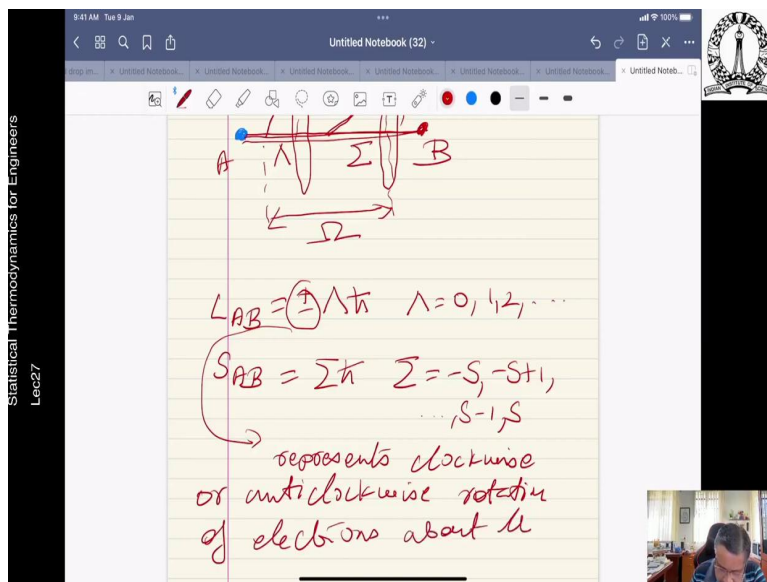 9:41 AM Tue 9 Jan
100%
Untitled Notebook (32)
Untitled Notebook...
Untitled Notebook...
Untitled Notebook...
Untitled Notebook...
Untitled Notebook...
Untitled Notebook...
Untitled Noteb...
Statistical Thermodynamics for Engineers
Lec27
A Λ Σ B
Ω
L_AB = ± Λħ Λ = 0, 1, 2, ...
S_AB = Σħ Σ = -S, -S+1,
..., S-1, S
represents clockwise
or anticlockwise rotation
of electrons about